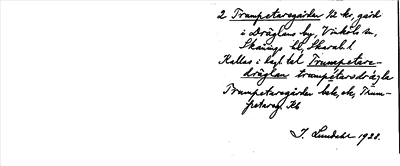 2 Trumpetaregården 1/2 kr, gård
i Dräglans by, Vinköls sn,
Skånings hd, Skarab. l
Kallas i byt tal Trumpetare-
dräglan trumpetarsdrägla
Trumpetaregården bek, ek, Trum-
petareg. Kb
J. Lundahl 1922.